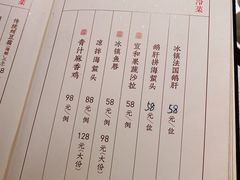 冷菜
冰镇法国鹅肝 58元/位
鹅肝拼海蜇头 58元/位
宣和果蔬沙拉 58元/例
冰镇鱼唇 58元/例
凉拌海蜇头 88元/例 128元(大份)
青汁麻香鸡 98元/例 98元(大份)